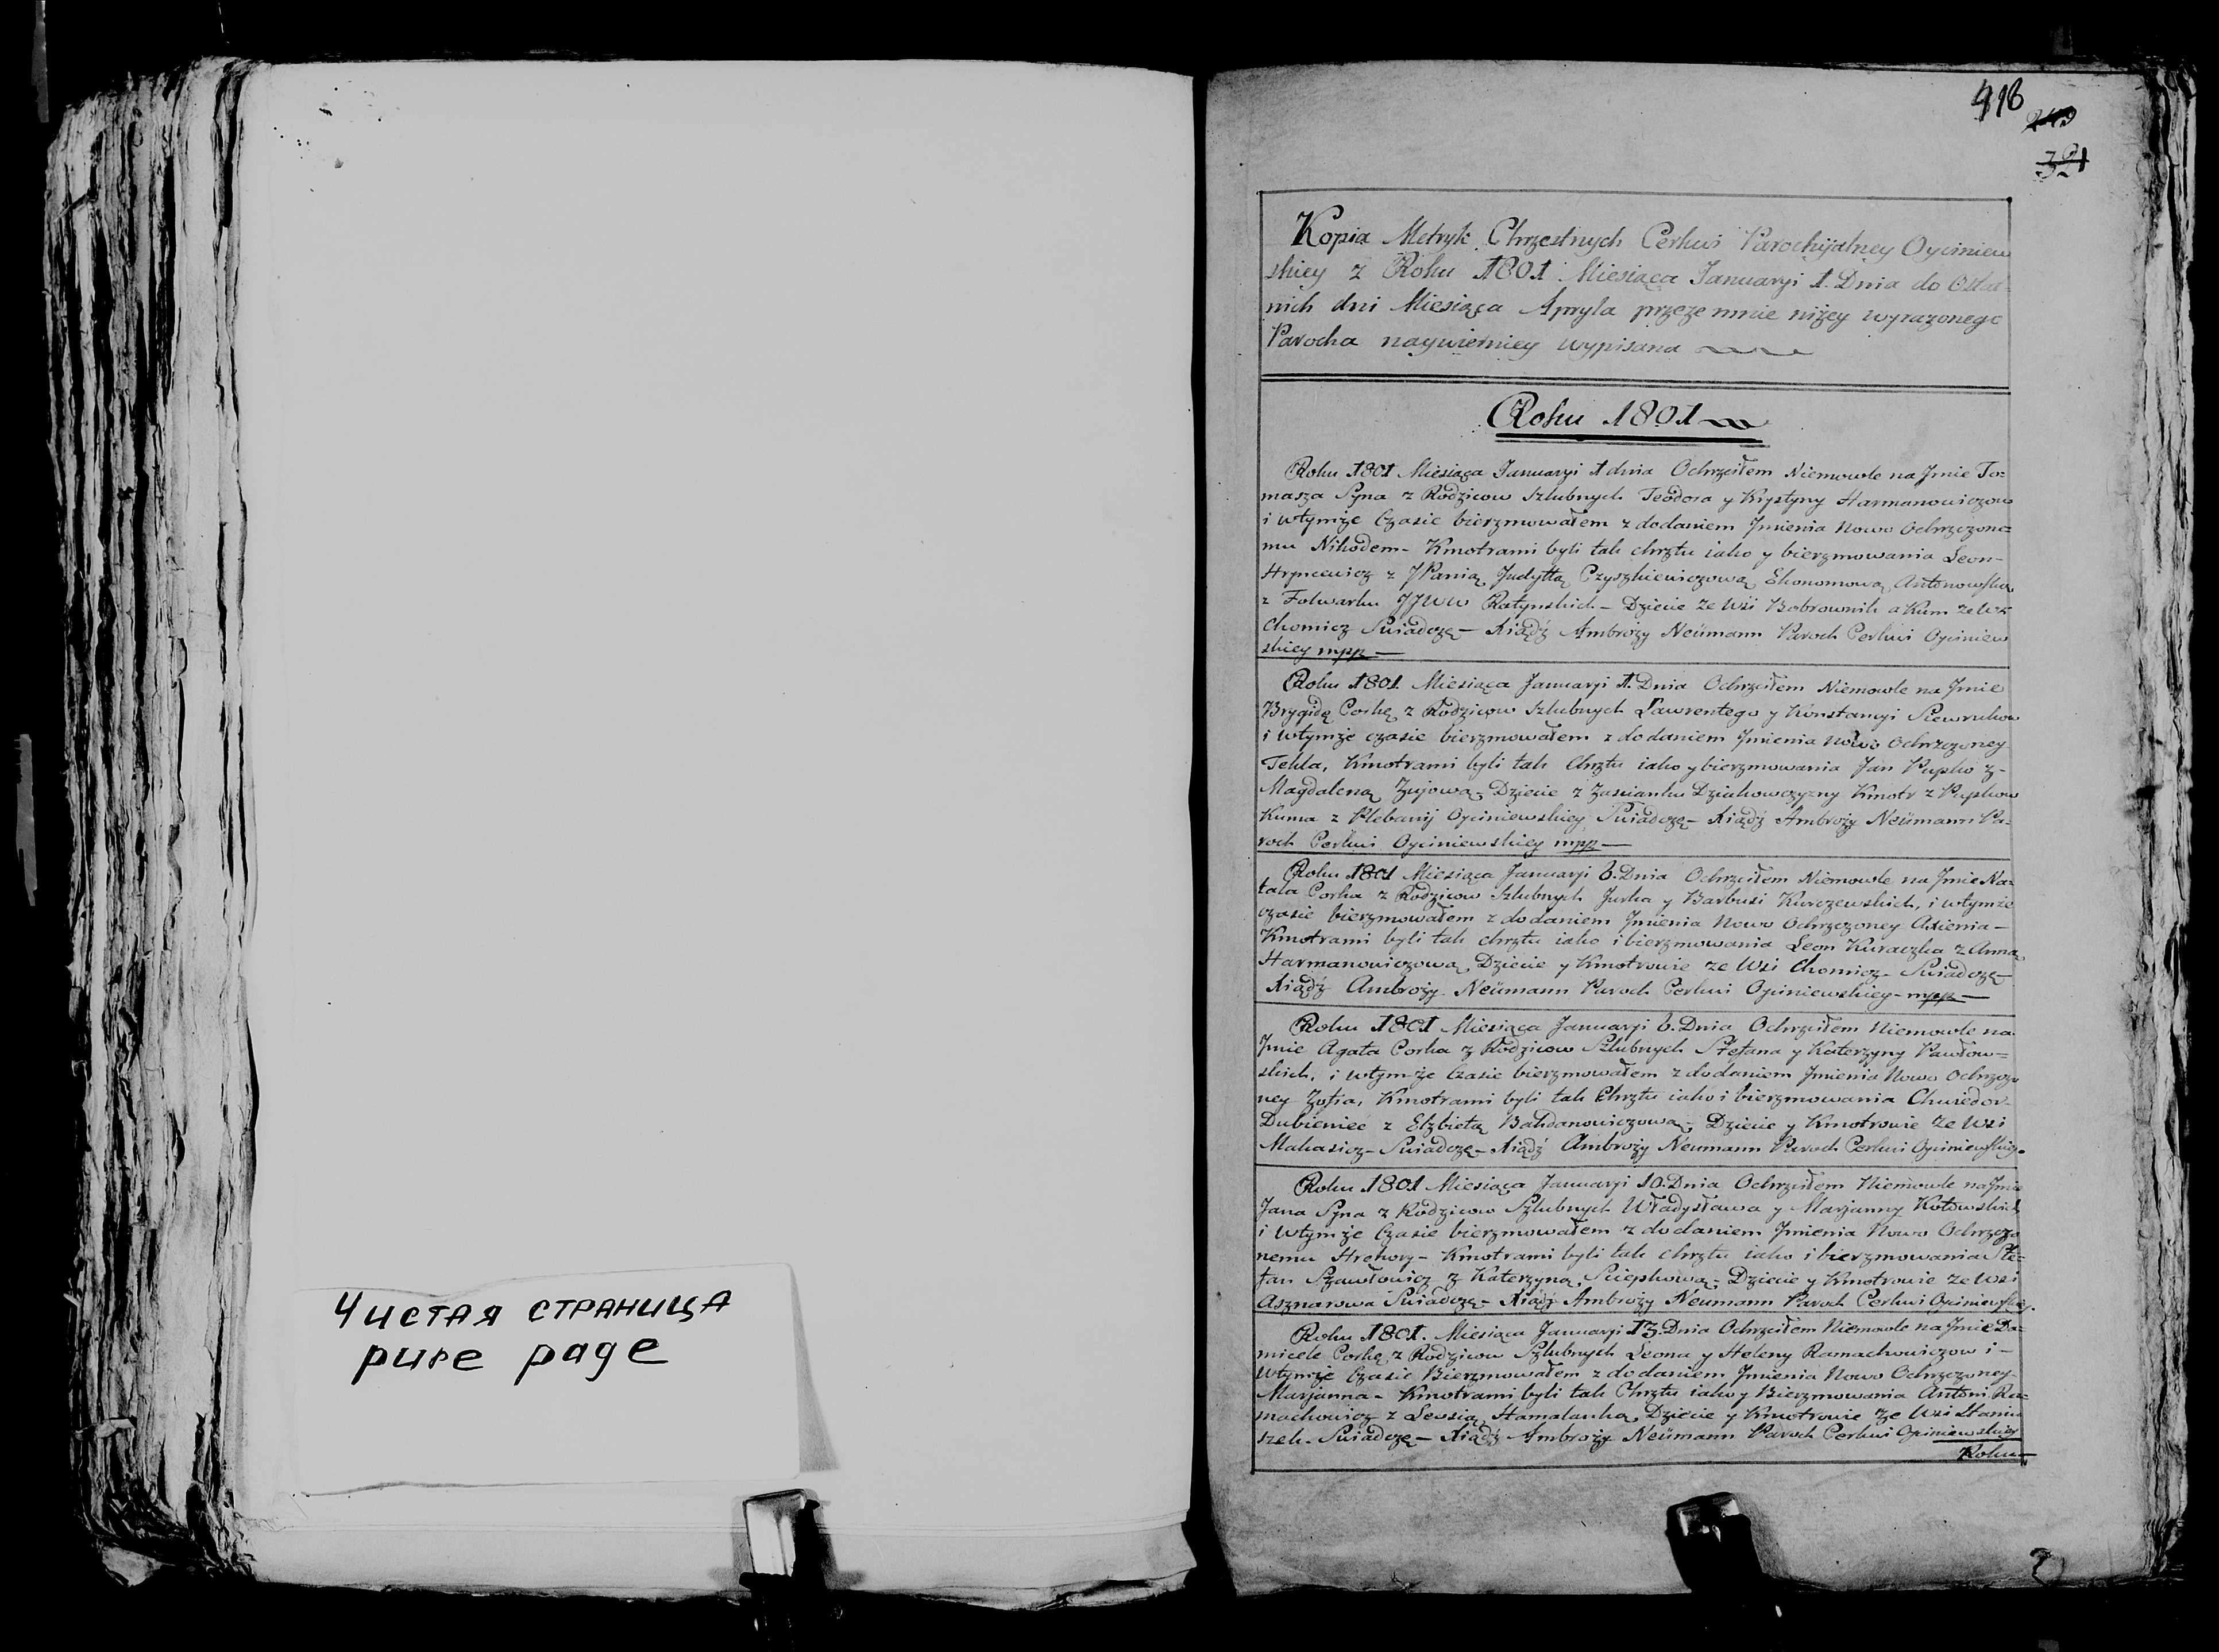 Чистая страница
pure page
418
321
Kopia Metryk Chrzestnych Cerkwi Parochijalney Oyciniew
skiey z Roku 1801 Miesiąca Januaryi 1. Dnia do Ostat-
nich dni Miesiąca Apryla przeze mnie niżey wyrazonego
Parocha naywierniey wypisana
Roku 1801
Roku 1801 Miesiąca Januaryi 1 dnia Ochrzciłem Niemowle na Jmie To=
masza Syna z Rodzicow Szlubnych Teodora y Krystyny Harmanowiczow
i wtymże Czasie bierzmowałem z dodaniem Jmienia Nowo Ochrzczone=
mu Nikodem - Kmotrami byli tak chrztu iako y bierzmowania Leon-
Hryncewicz z JPanią Judyttą Czyszkiewiczową Ekonomową Antonowską
z Folwarku JJWW Ratynskich - Dziecie ze Wsi Bobrownik a Kum ze Wsi
Chomicz Swiadczę - Xiądz Ambroży Neümann Paroch Cerkwi Oyciniew
skiey mpp -
Roku 1801 Miesiąca Januaryi 1. Dnia Ochrzciłem Niemowle na Jmie
Brygidę Corkę z Rodzicow Szlubnych Lawrentego y Konstancyi Siewrukow
i wtymże czasie bierzmowałem z dodaniem Jmienia Nowo Ochrzczoney
Tekla, Kmotrami byli tak Chrztu iako y bierzmowania Jan Pupko z-
Magdaleną Zujową - Dziecie z Zascianku Dziakowczyzny Kmotr z Pupkow
Kuma z Plebanij Oyciniewskiey Swiadczę - Xiądz Ambroży Neümann Pa=
roch Cerkwi Oyciniewskiey mpp -
Roku 1801 Miesiąca Januaryi 6. Dnia Ochrzciłem Niemowle na Jmie Na=
tala Corka z Rodzicow Szlubnych Jurka y Barbusi Kurczewskich, i wtymże
czasie bierzmowałem z dodaniem Jmienia Nowo Ochrzczoney Axienia -
Kmotrami byli tak chrztu iako i bierzmowania Leon Kuraczka z Anną
Harmanowiczową Dziecie y Kmotrowie ze Wsi Chomicz - Swiadczę -
Xiądz Ambroży Neümann Paroch Cerkwi Oyciniewskiey - mpp -
Roku 1801 Miesiąca Januaryi 6. Dnia Ochrzciłem Niemowle na
Jmie Agata Corka z Rodzicow Szlubnych Stefana y Katerzyny Pawłow=
skich, i wtymże Czasie bierzmowałem z dodaniem Jmienia Nowo Ochrzczo
ney Zofia, Kmotrami byli tak Chrztu iako i bierzmowania Chwiedor
Dubieniec z Elzbietą Bahdanowiczową - Dziecie y Kmotrowie ze Wsi
Makasicz - Swiadczę - Xiądz Ambroży Neumann Paroch Cerkwi Oyciniewskiey
Roku 1801 Miesiąca Januaryi 10. Dnia Ochrzciłem Niemowle na Jmie
Jana Syna z Rodzicow Szlubnych Władysława y Marjanny Kotowskich
i wtymże Czasie bierzmowałem z dodaniem Jmienia Nowo Ochrzczo
nemu Hrehory - Kmotrami byli tak chrztu iako i bierzmowania Ste=
fan Szawłowicz z Katerzyną Sciepkową - Dziecie y Kmotrowie ze Wsi
Asznarowa Swiadczę - Xiądz Ambroży Neumann Paroch Cerkwi Oyciniewskiey.
Roku 1801. Miesiąca Januaryi 13. Dnia Ochrzciłem Niemowle na Jmie Do=
micele Corkę z Rodzicow Szlubnych Leona y Heleny Ramachowiczow i -
Wtymże Czasie Bierzmowałem z dodaniem Jmienia Nowo Ochrzczoney
Marjanna - Kmotrami byli tak Chrztu iako y Bierzmowania Antoni Ra=
machowicz z Lewsią Hamalanką Dziecie y Kmotrowie ze Wsi Staniu
szek. Swiadczę - Xiądz Ambroży Neümann Paroch Cerkwi Oyciniewskiey
Roku